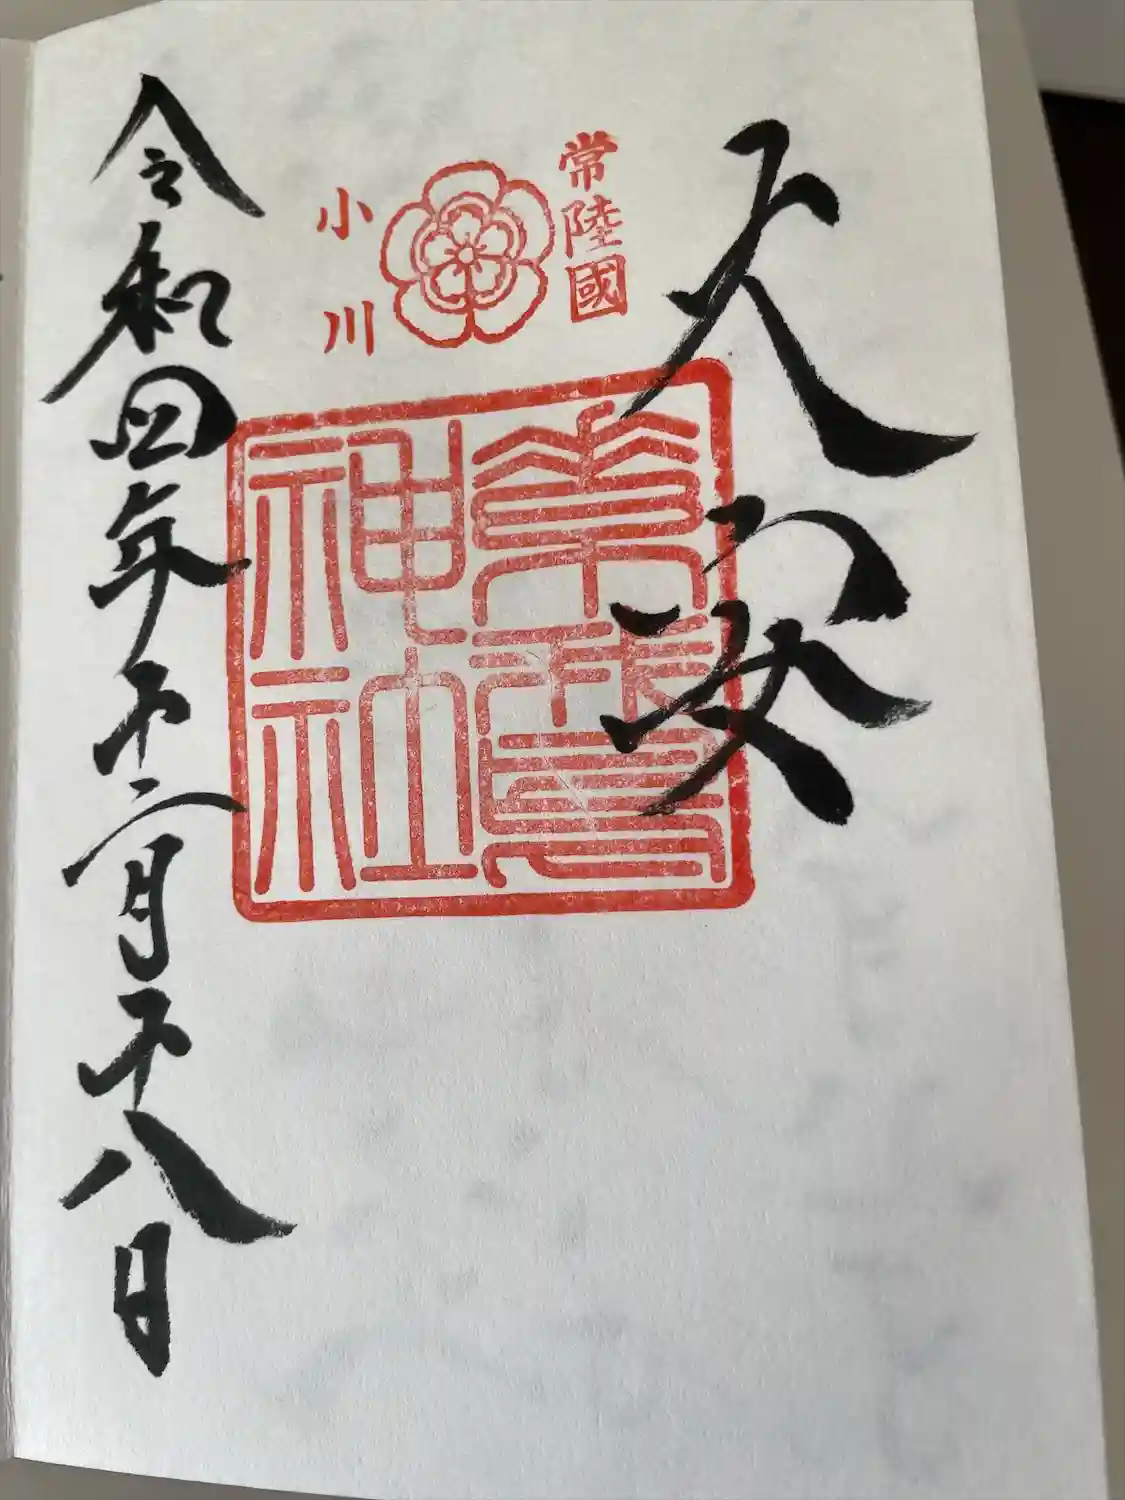 天安
常陸國
小川
素鵞
神社
令和四年十二月十八日